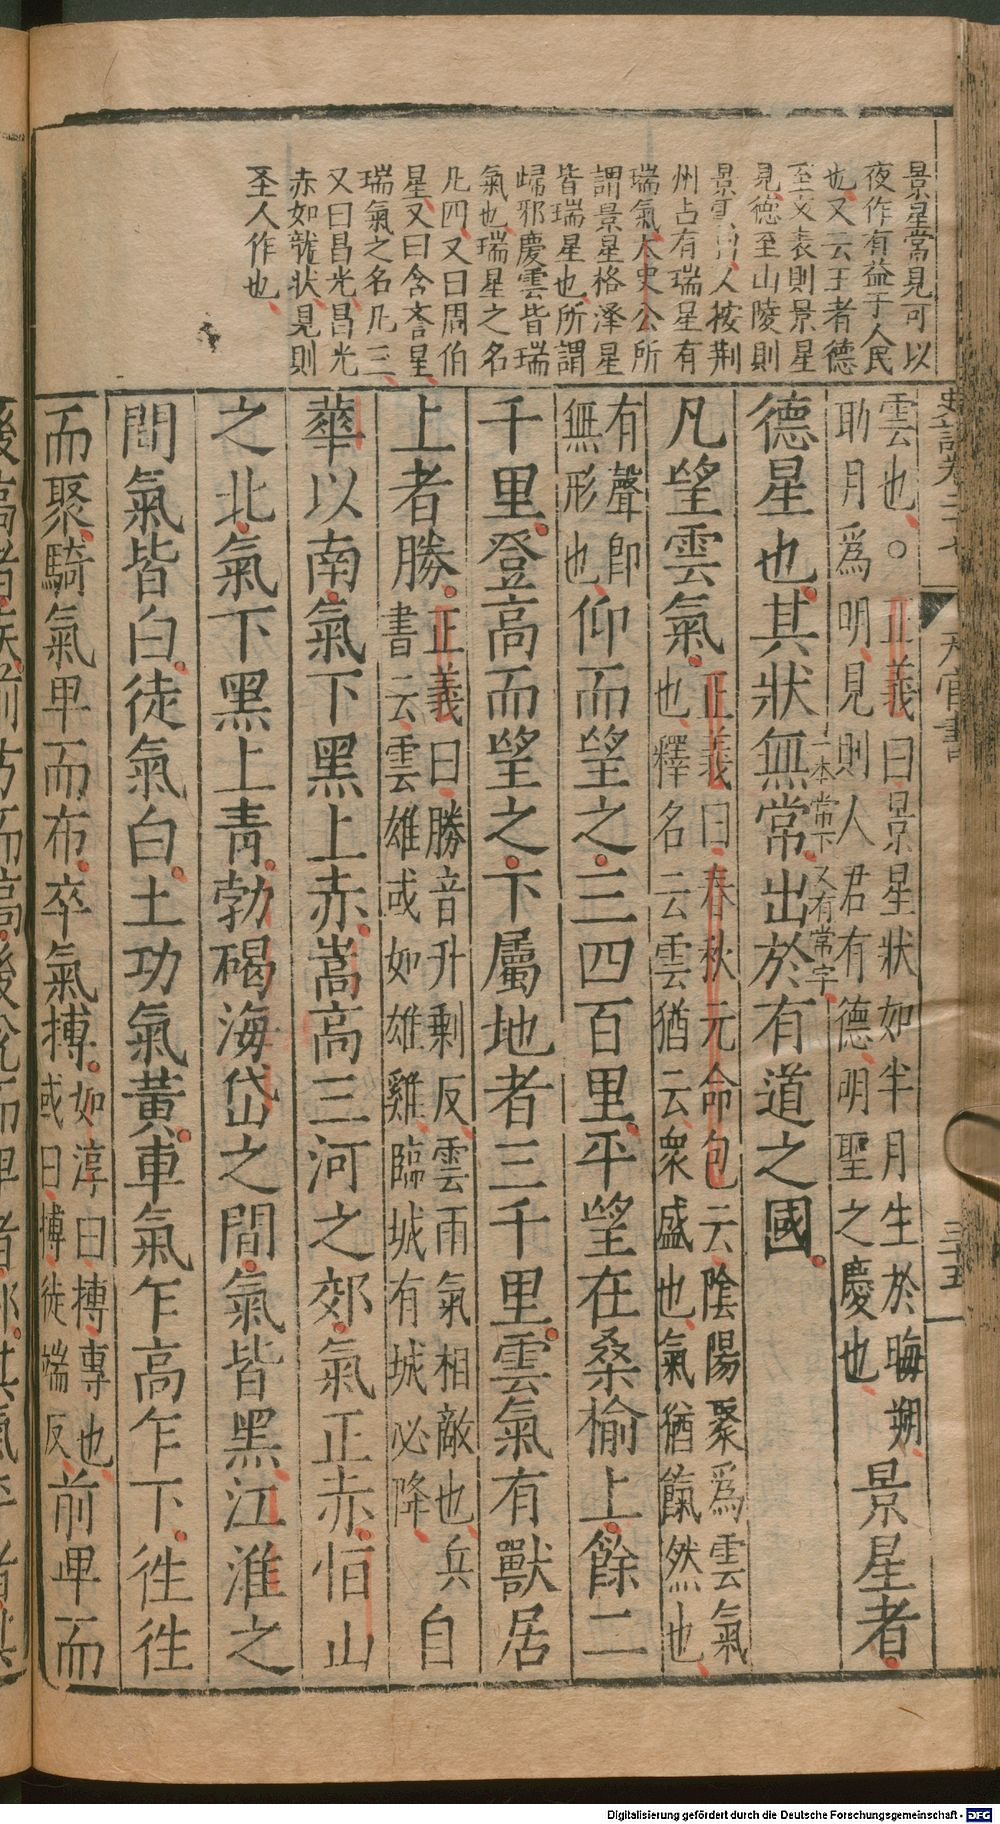 景星常見可以
夜作有益于人民
也又云王者德
至文表則景星
見德至山陵則
景雲出人按荆
州占有瑞星有
瑞氣太史公所
謂景星格泽星
皆瑞星也所謂
歸邪慶雲皆瑞
氣也瑞星之名
凡四又曰周伯
星又曰含誉星
瑞氣之名凡三
又曰昌光昌光
赤如龍状見則
圣人作也
史記卷二十七
天官書
三十五
雲也○正義曰景星狀如半月生於晦朔
助月爲明見則人君有德明聖之慶也
景星者
德星也其狀無常出於有道之國
一本常下又有常字
凡望雲氣
正義曰春秋元命包云陰陽聚爲雲氣
也釋名云雲猶云衆盛也氣猶餼然也
有聲卽
無形也
仰而望之三四百里平望在桑榆上餘二
千里登高而望之下屬地者三千里雲氣有獸居
上者勝
正義曰勝音升剩反雲雨氣相敵也兵
書云雲雄或如雄雞臨城有城必降
自
華以南氣下黑上赤嵩高三河之郊氣正赤恒山
之北氣下黑上青勃碣海岱之間氣皆黑江淮之
間氣皆白徒氣白土功氣黃車氣乍高乍下徃徃
而聚騎氣卑而布卒氣摶
如淳曰摶專也
或曰摶徒端反
前卑而
Digitalisierung gefördert durch die Deutsche Forschungsgemeinschaft - DFG